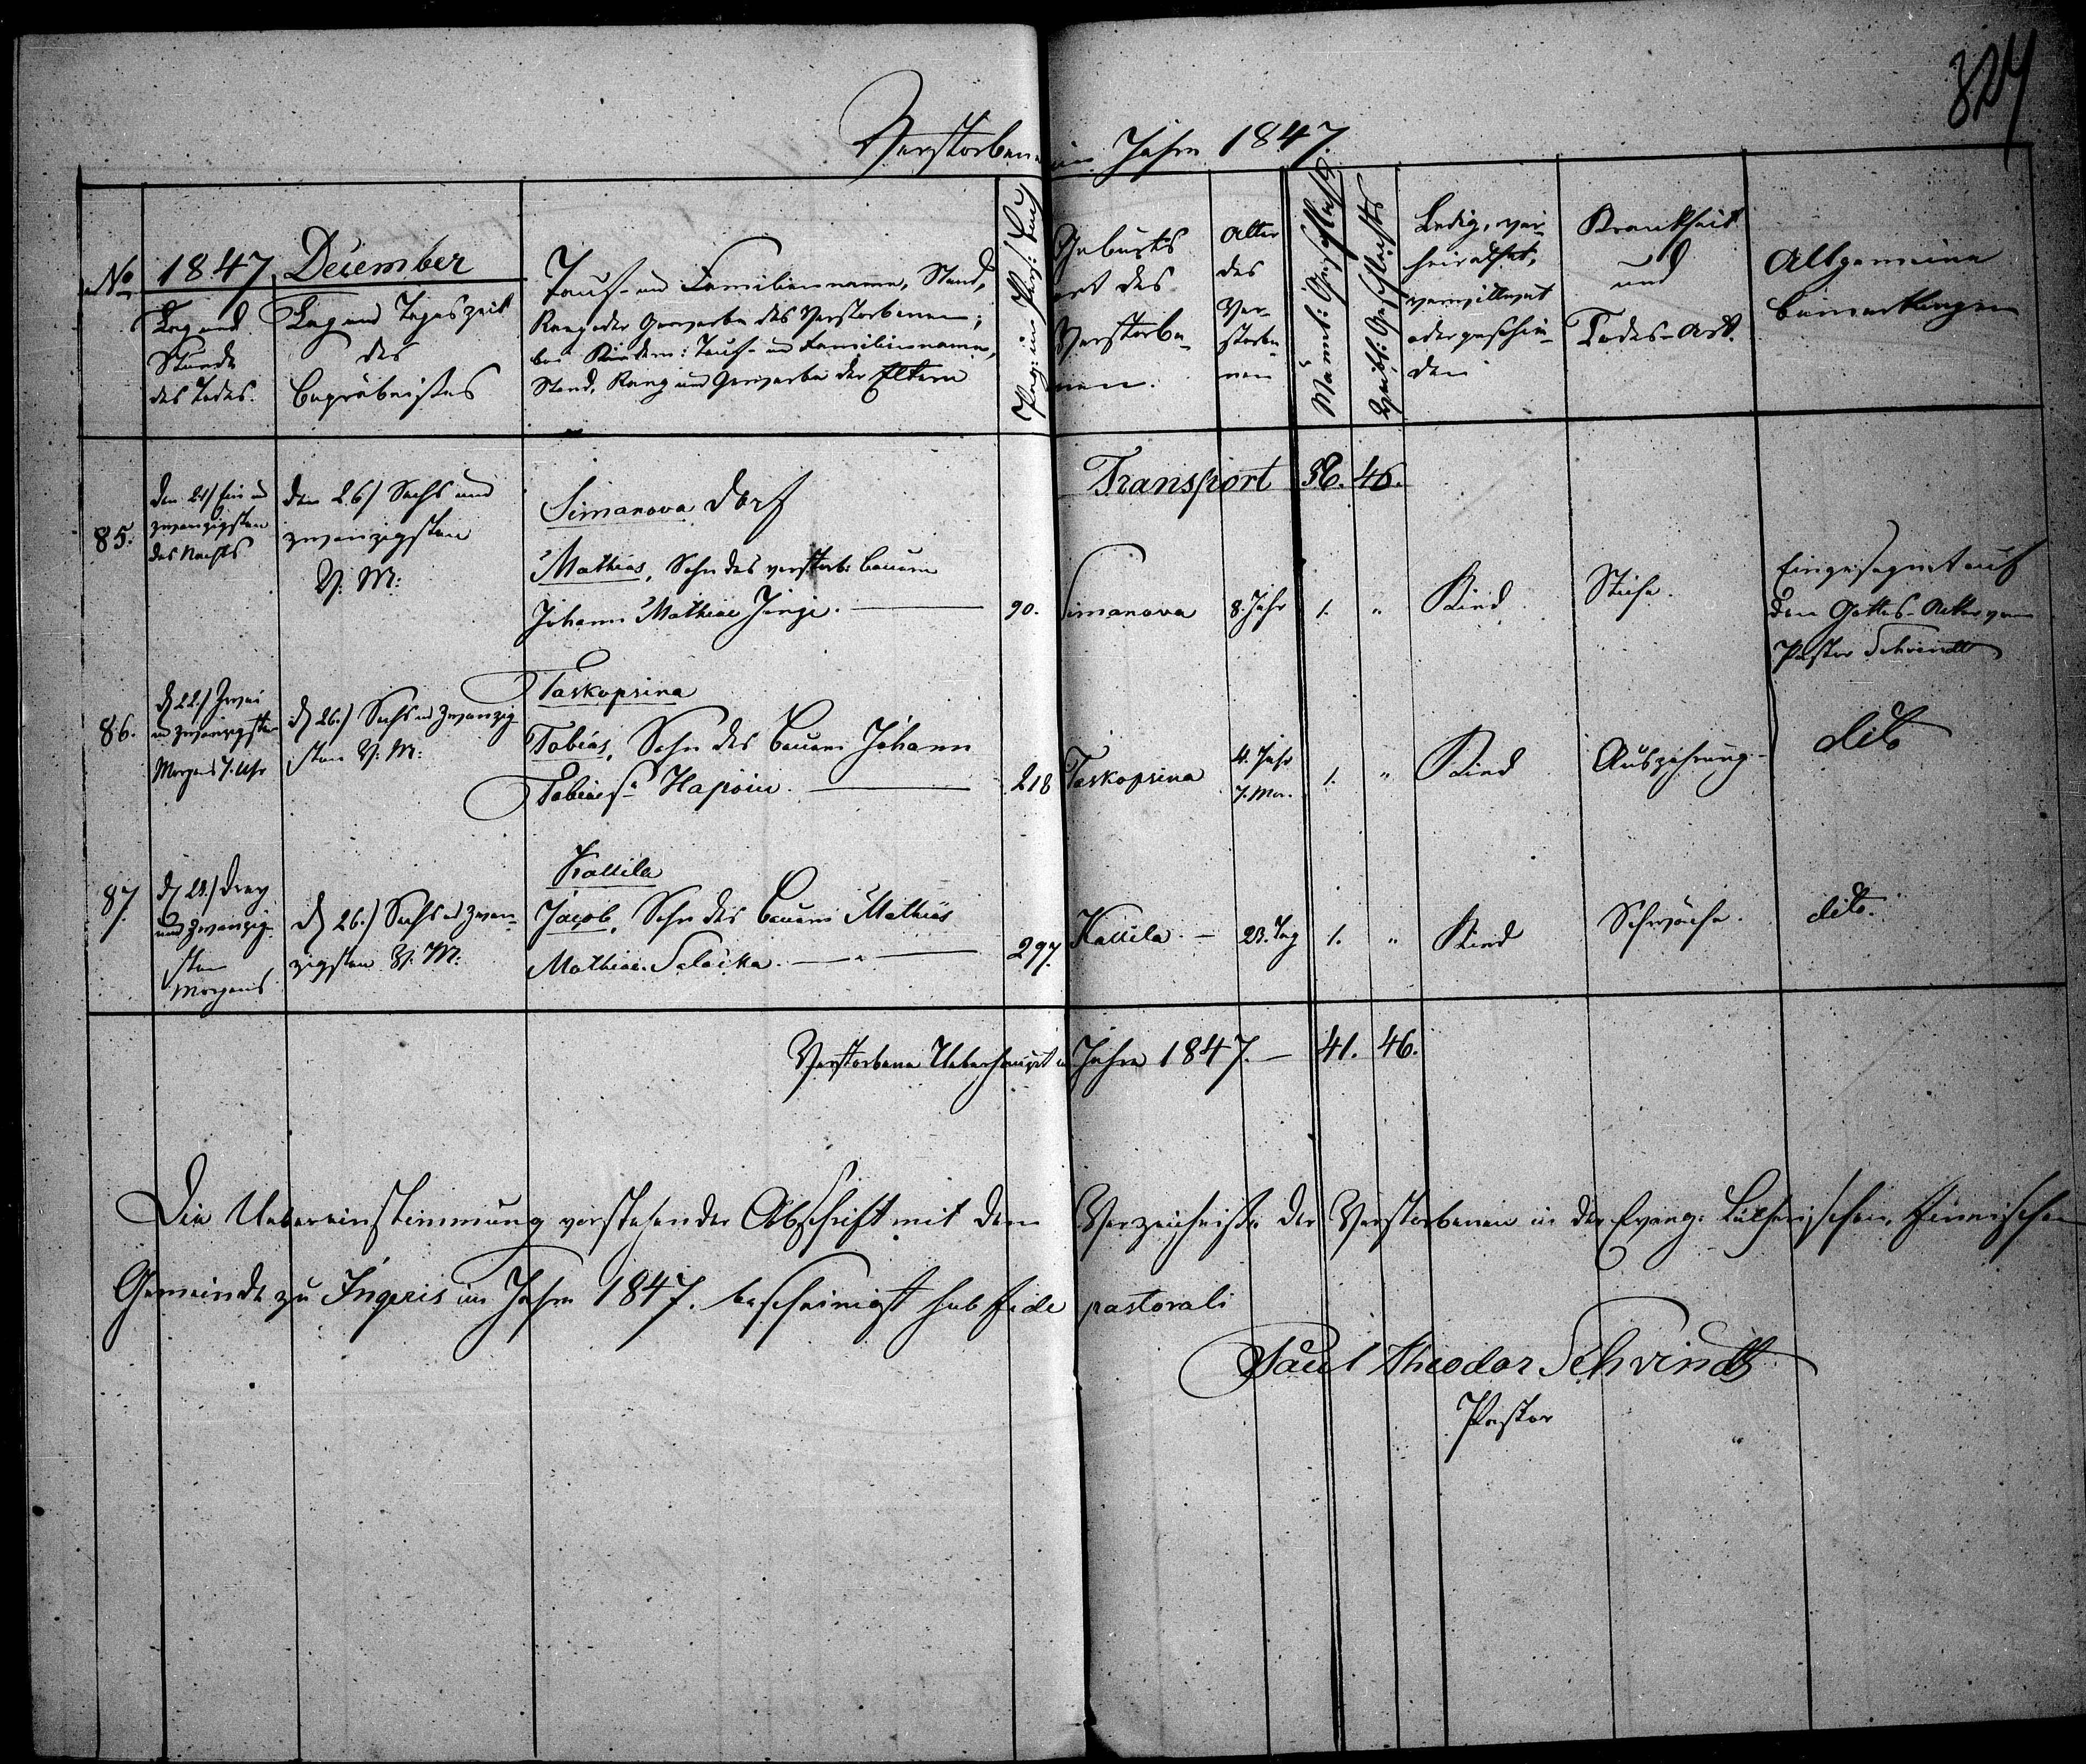 824
Verstorbene im Jahre 1847.
No
1847 December
Tag und
Stunde
des Todes.
Tag und Tageszeit
des
Begräbnisses
Tauf- und Familienname, Stand,
Rang oder Gewerbe des Verstorbenen;
bei Kindern: Tauf- und Familienname,
Stand, Rang und Gewerbe der Eltern
Pag: im Pers: Buch
Geburts
ort des
Verstorbe-
nen.
Alter
des
Ver-
storbe-
nen
Männl: Geschlechts
Weibl: Geschlechts
Ledig, ver-
heirathet,
verwittwet
oder geschie-
den
Krankheit
und
Todes-Art.
Allgemeine
Bemerkungen
Transport 38. 46.
85.
den 21/ Ein und
zwanzigsten
des Nachts
den 26/ Sechs und
zwanzigsten
V: M:
Simanova Dorf
Mathias, Sohn des verstorb: Bauern
Johann Mathiae Jinje.
90.
Simanova
8. Jahr
1. "
Kind
Eingesegnet auf
dem Gottes-Acker vom
Pastor Schvindt
86.
d 22./ Zwei
und zwanzigsten
Morgens 7. Uhr
d 26./ Sechs und Zwanzig
sten V: M:
Taskopsina
Tobias, Sohn des Bauern Johann
Tobiae
218
Taskopsina
4. Jahr
7. Mon.
1. "
Kind
Auszehrung
dito
87.
d 23./ Drey
und Zwanzig-
sten
Morgens
d 26./ Sechs und Zwan-
zigsten V: M:
Kallila
Jacob, Sohn des Bauern Mathias
Mathiae
297.
Kallila.
23. Tag
1. "
Kind
Schwäche.
dito.
Verstorbene Ueberhaupt im Jahre 1847. — 41. 46.
Die Uebereinstimmung vorstehender Abschrift mit dem Verzeichnisse der Verstorbenen in der Evang: Lutherischen, Finnischen
Gemeinde zu Ingeris im Jahre 1847. bescheinigt sub fide pastorali
Paul Theodor Schvindt
Pastor